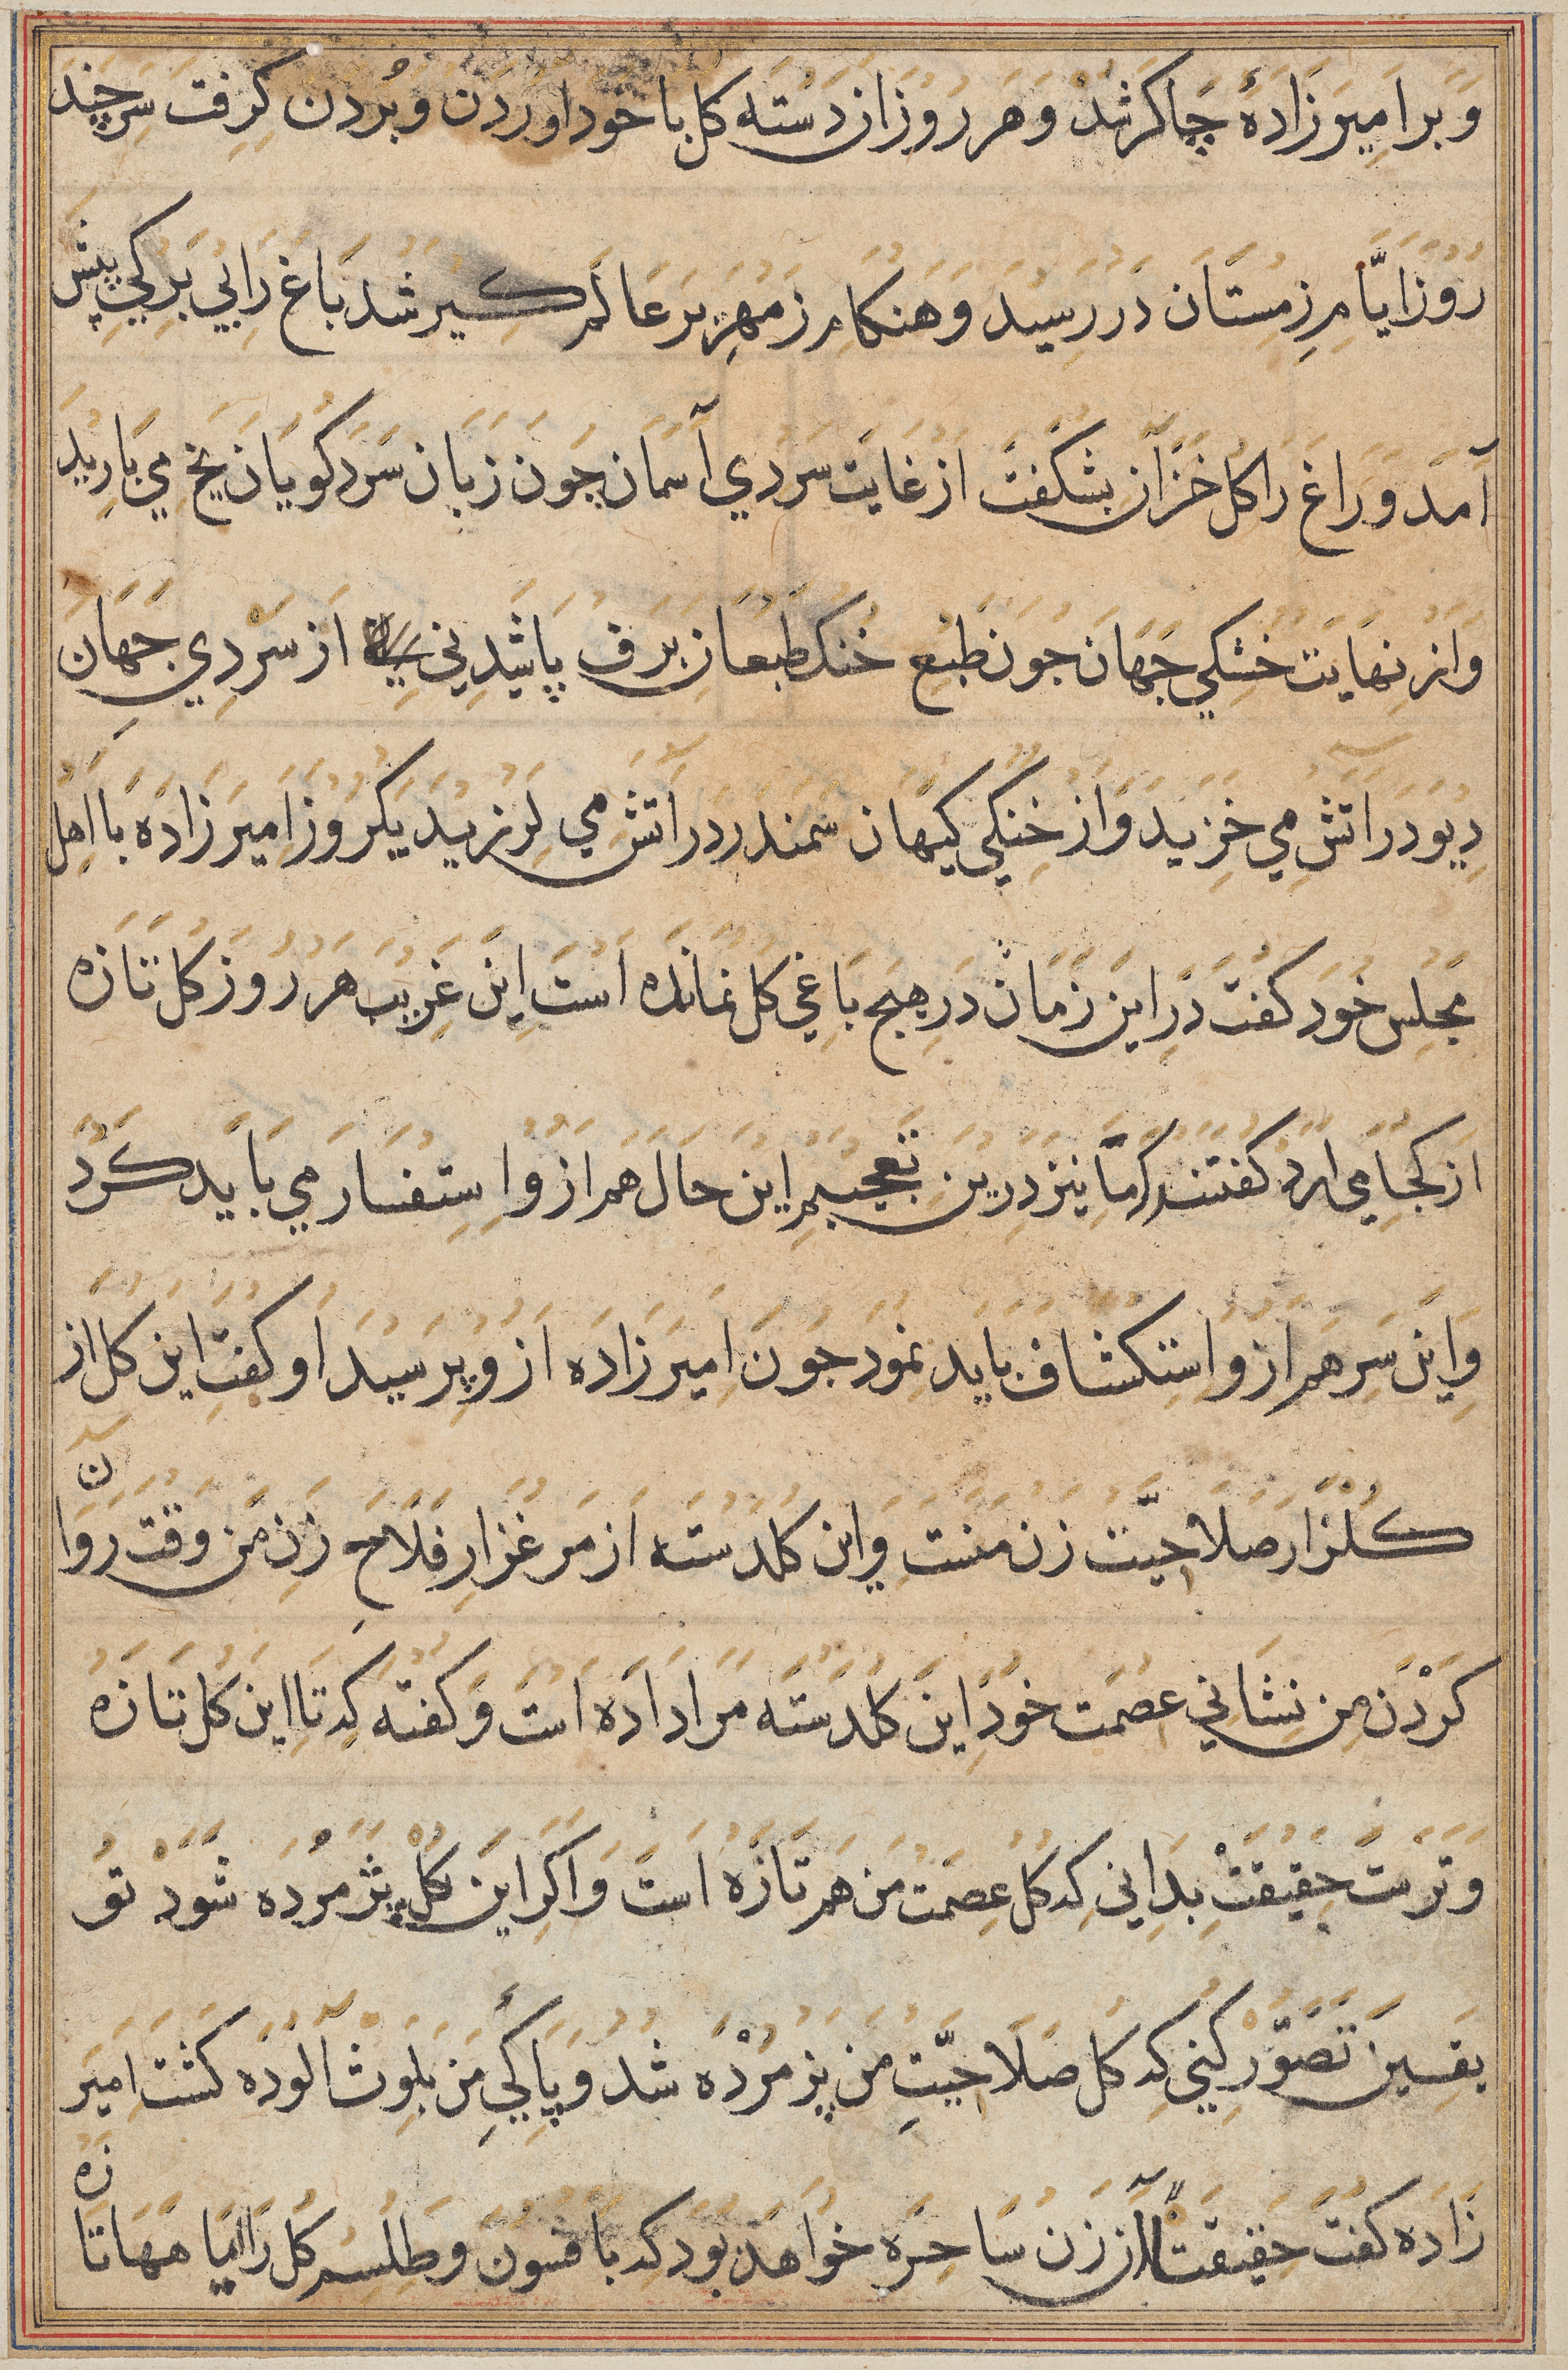 و بر امیرزادهٔ چاکر شد و هر روز از دسته کل با خود اوردن و بردن کرفت سر چند
روز ایّام زمستان در رسید و هنکام زمهریر عالم کیر شد باغ را بی برکی پیش
آمد و راغ را کل خزان بشکفت از غایت سردی آسمان جون زبان سرد کویان یخ می بارید
و از نهایت خشکی جهان جون طبع خنک طبعان برف پاشیدنی از سردی جهان
دیو در اتش می خزید و از خنکی کیهان سمندر در اتش می لرزید یکروز امیرزاده با اهل
مجلس خود کفت در این زمان در هیج باغی کل نمانده است این غریب هر روز کل تازه
از کجا می ارد کفتند که ما نیز درین تعجبیم این حال هم از و استفسار می باید کرد
و این سر هم ازو استکشاف باید نمود جون امیرزاده ازو پرسید او کفت این کل از
کلزار صلاحیّت زن منست و این کلدسته از مرغزار فلاح زن من وقت روان
کردن من نشانی عصمت خود این کلدسته مرا داده است و کفته که تا این کل تازه
و ترست حقیقت بدانی که کل عصمت من هم تازه است و اکر این کل پژمرده شود تو
یقین تصوّر کنی که کل صلاحیّت من پزمرده شد و پاکی من بلوث آلوده کشت امیر
زاده کفت حقیقت آن زن ساحره خواهد بود که بافسون و طلسم کل را ماهها تازه